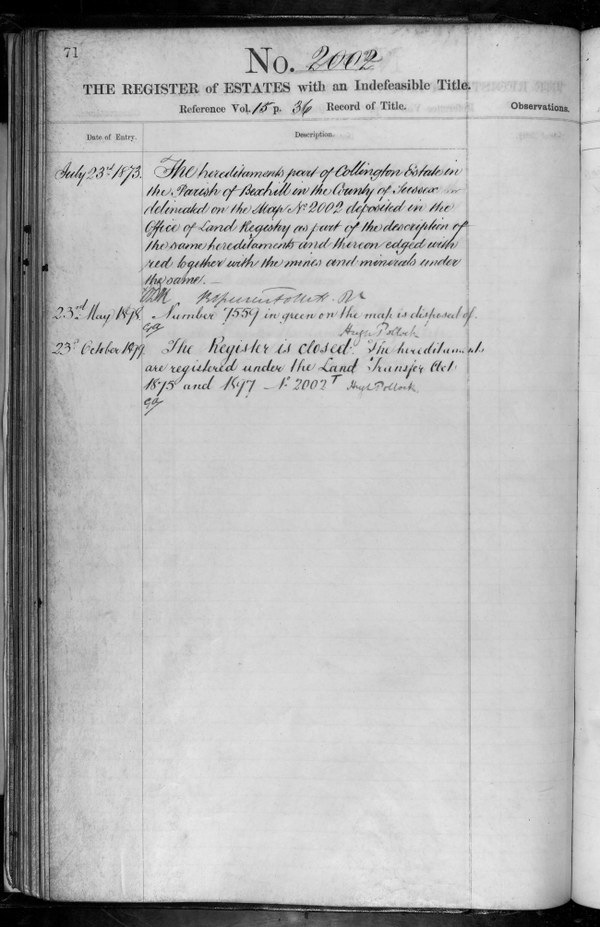 71
No. 2002
THE REGISTER of ESTATES with an Indefeasible Title.
Reference Vol. 15 p. 36 Record of Title.
Observations.
Date of Entry.
Description.
July 23rd 1873. The hereditaments part of Collington Estate in
the Parish of Bexhill in the County of Sussex
delineated on the Map No 2002 deposited in the
Office of Land Registry as part of the description of
the same hereditaments and thereon edged with
red together with the mines and minerals under
the same. —
23rd May 1898. Number 7559 in green on the map is disposed of.
Hugh Pollock
23rd October 1899. The Register is closed. The hereditaments
are registered under the Land Transfer Act
1875 and 1897 — No 2002 T Hugh Pollock